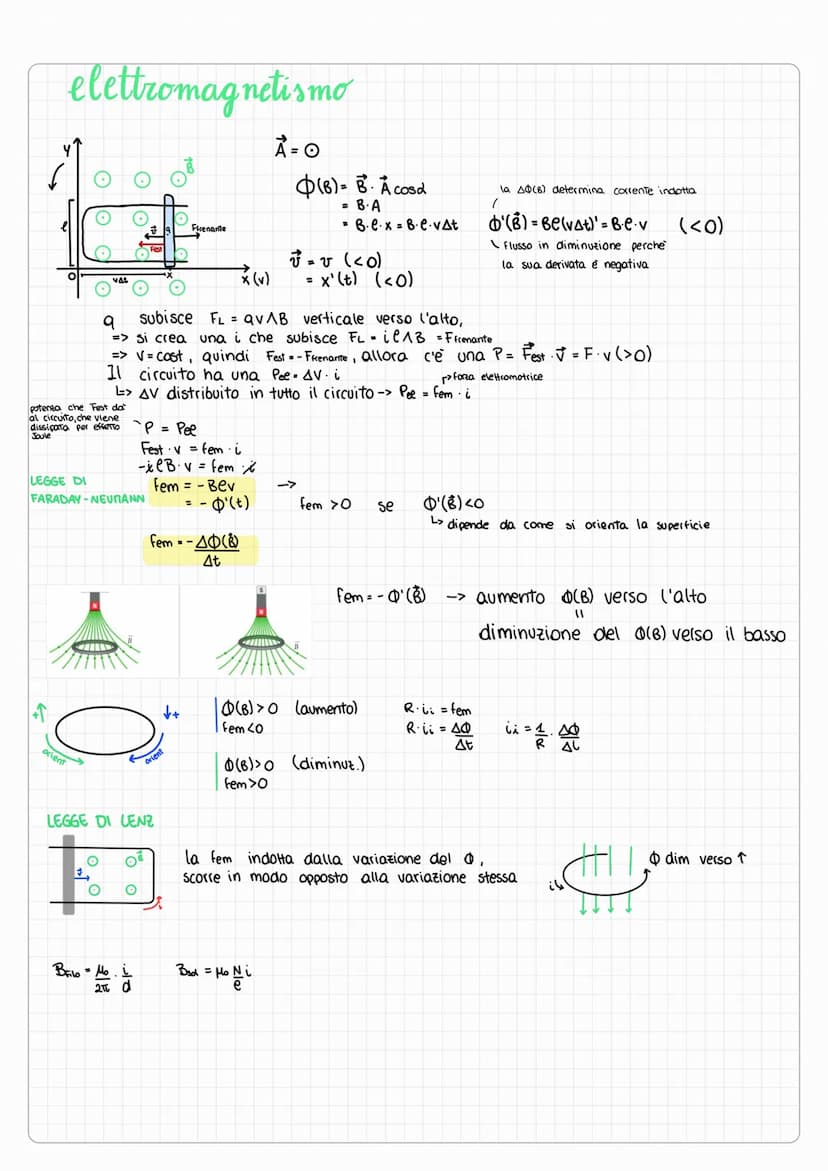 elettromagnetismo
y
B⃗
l
v⃗
q
Frenante
Fest
O
vΔt
x
x(v)
A⃗ = ⊙
Φ(B) = B⃗ · A⃗ cosα
= B·A
= B·l·x = B·l·vΔt
v⃗ = v (<0)
= x'(t) (<0)
la ΔΦ(B) determina corrente indotta
Φ'(B⃗) = Bl(vΔt)' = B·l·v (<0)
flusso in diminuzione perché
la sua derivata è negativa
q subisce FL = qv∧B verticale verso l'alto,
=> si crea una i che subisce FL = il∧B = Frenante
=> v=cost, quindi Fest = -Frenante, allora c'è una P = F⃗est · v⃗ = F·v (>0)
Il circuito ha una Pel = ΔV · i
forza elettromotrice
↳ ΔV distribuito in tutto il circuito -> Pel = fem · i
potenza che Fest dà
al circuito, che viene
dissipata per effetto
Joule
P = Pel
Fest · v = fem · i
-ilB · v = fem · i
LEGGE DI
FARADAY-NEUMANN
fem = -Blv
= -Φ'(t)
-> fem >0 se Φ'(B⃗)<0
↳ dipende da come si orienta la superficie
fem = - ΔΦ(B⃗)
Δt
N
B⃗
S
N
B⃗
fem = -Φ'(B⃗) -> aumento Φ(B) verso l'alto
=
diminuzione del Φ(B) verso il basso
+↑
↓+
orient
orient
Φ(B)>0 (aumento)
fem<0
Φ(B)>0 (diminut.)
fem>0
R·ii = fem
R·ii = ΔΦ
Δt
ii = 1/R · ΔΦ/Δt
LEGGE DI LENZ
B⃗
v⃗
i
la fem indotta dalla variazione del Φ,
scorre in modo opposto alla variazione stessa
i
Φ dim verso ↑
Bfilo = μ₀/2π · i/d
Bsol = μ₀ N/l i